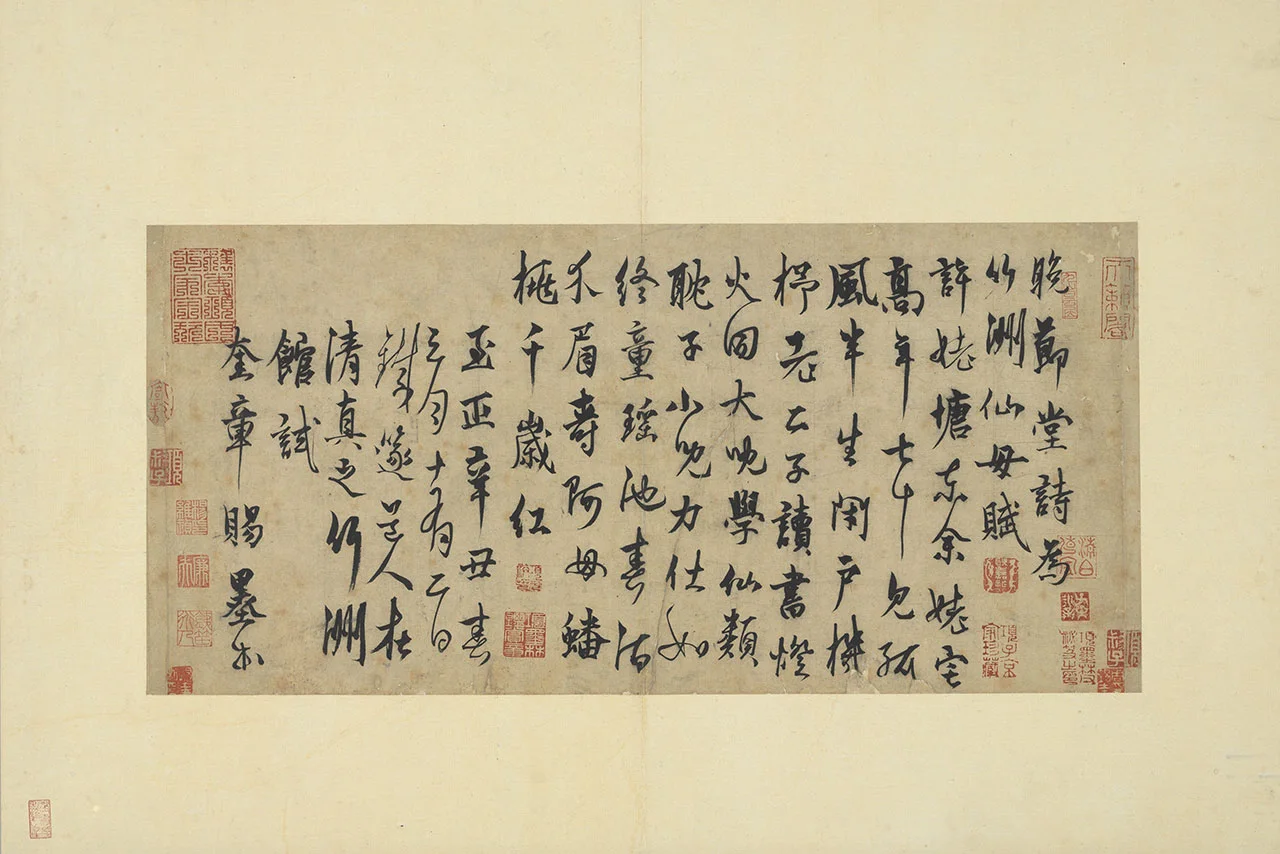 晚節堂詩為
竹洲仙母賦
許姥塘東余姥宅
高年七十見孤
風半生閉戶機
杼老二子讀書燈
火同大兒學仙類
耽子小兒力仕如
終童瑤池春酒
介眉壽阿母蟠
桃千歲紅
至正辛丑春
三月十有二日
鐵篴道人在
清真之竹洲
館試
奎章賜墨書